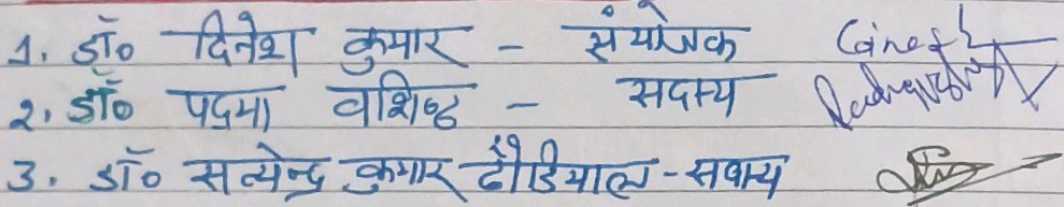 1. डॉ० दिनेश कुमार - संयोजक
2. डॉ० पदमा वशिष्ठ - सदस्य
3. डॉ० सत्येन्द्र कुमार ढौंडियाल - सदस्य